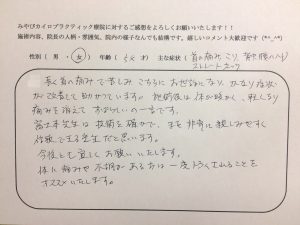 みやびカイロプラクティック療院に対するご感想をよろしくお願いします！！
施術内容、院長の人柄・雰囲気、院内の様子なんでも結構です。嬉しいコメント大歓迎です
性別（ 男 ・ 女 ） 年齢（ 5 才） 主な症状（ 首の痛み、こり
ストレートネック
長く首の痛みで苦しみ こちらに お世話になり、かなり症状
が改善して助かっています。施術後は体が軽く、程なくなり
痛みも消えて すばらしいの一言です。
先生は 技術も確かで、また 非常に 親しみやすく
信頼できる先生だと思います。
今後とも宜しくお願いいたします。
体に痛みや不調がある方は 一度 ことを
オススメいたします。